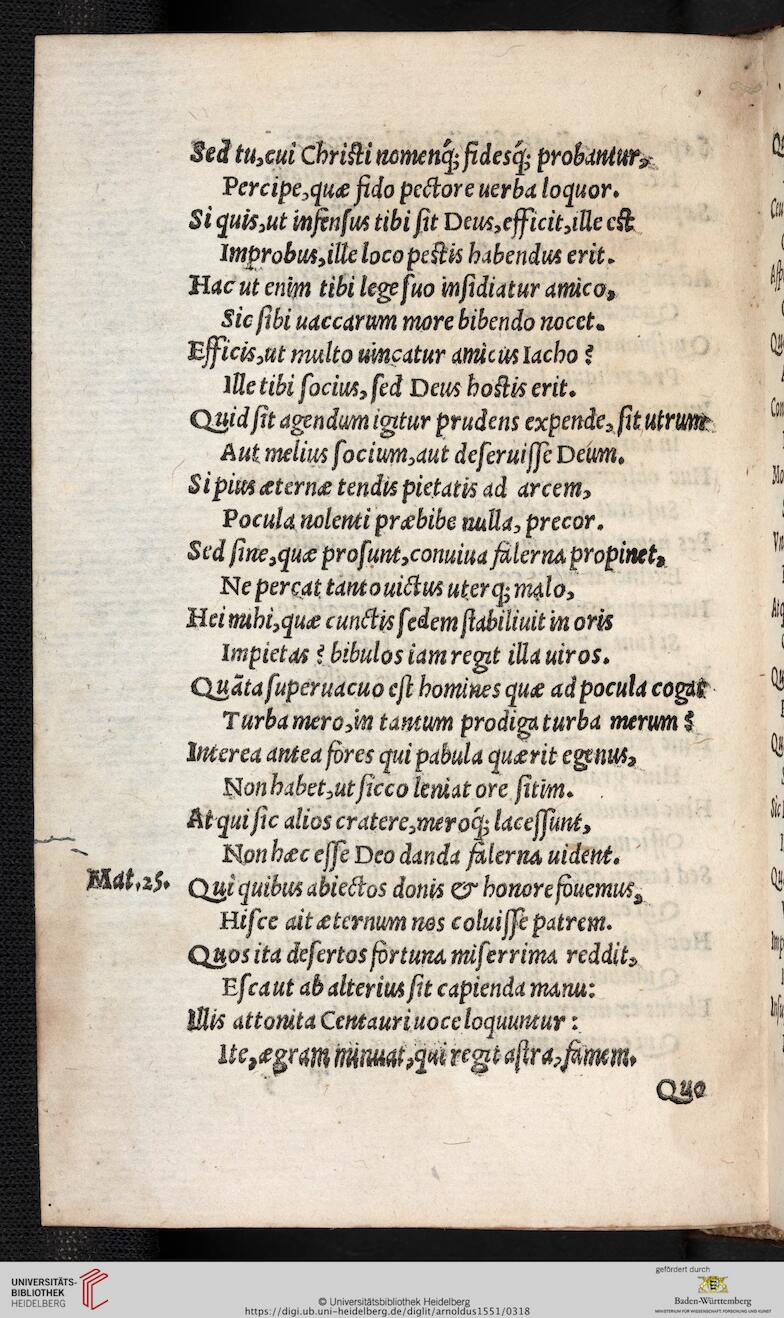 Sed tu, cui Christi nomenq́; fidesq́; probantur,
Percipe, quæ fido pectore uerba loquor.
Si quis, ut infensus tibi sit Deus, efficit, ille est
Improbus, ille loco pestis habendus erit.
Hac ut enim tibi lege suo insidiatur amico,
Sic sibi uaccarum more bibendo nocet.
Efficis, ut multo uincatur amicus Iacho?
Ille tibi socius, sed Deus hostis erit.
Quid sit agendum igitur prudens expende, sit utrum
Aut melius socium, aut deseruisse Deum.
Si pius æternæ tendis pietatis ad arcem,
Pocula nolenti præbibe nulla, precor.
Sed sine, quæ prosunt, conuiua falerna propinet,
Ne percat tanto uictus uterq; malo,
Hei mihi, quæ cunctis sedem stabiliuit in oris
Impietas? bibulos iam regit illa uiros.
Quãta superuacuo est homines quæ ad pocula cogat
Turba mero, in tantum prodiga turba merum?
Interea antea fores qui pabula quærit egenus,
Non habet, ut sicco leniat ore sitim.
At qui sic alios cratere, meroq́; lacessunt,
Non hæc esse Deo danda falerna uident.
Mat. 25. Qui quibus abiectos donis & honore fouemus,
Hisce ait æternum nos coluisse patrem.
Quos ita desertos fortuna miserrima reddit,
Esca ut ab alterius sit capienda manu:
Illis attonita Centauri uoce loquuntur:
Ite, ægram minuat, qui regit astra, famem.
Quo
UNIVERSITÄTS-
BIBLIOTHEK
HEIDELBERG
© Universitätsbibliothek Heidelberg
https://digi.ub.uni-heidelberg.de/diglit/arnoldus1551/0318
gefördert durch
Baden-Württemberg
MINISTERIUM FÜR WISSENSCHAFT, FORSCHUNG UND KUNST